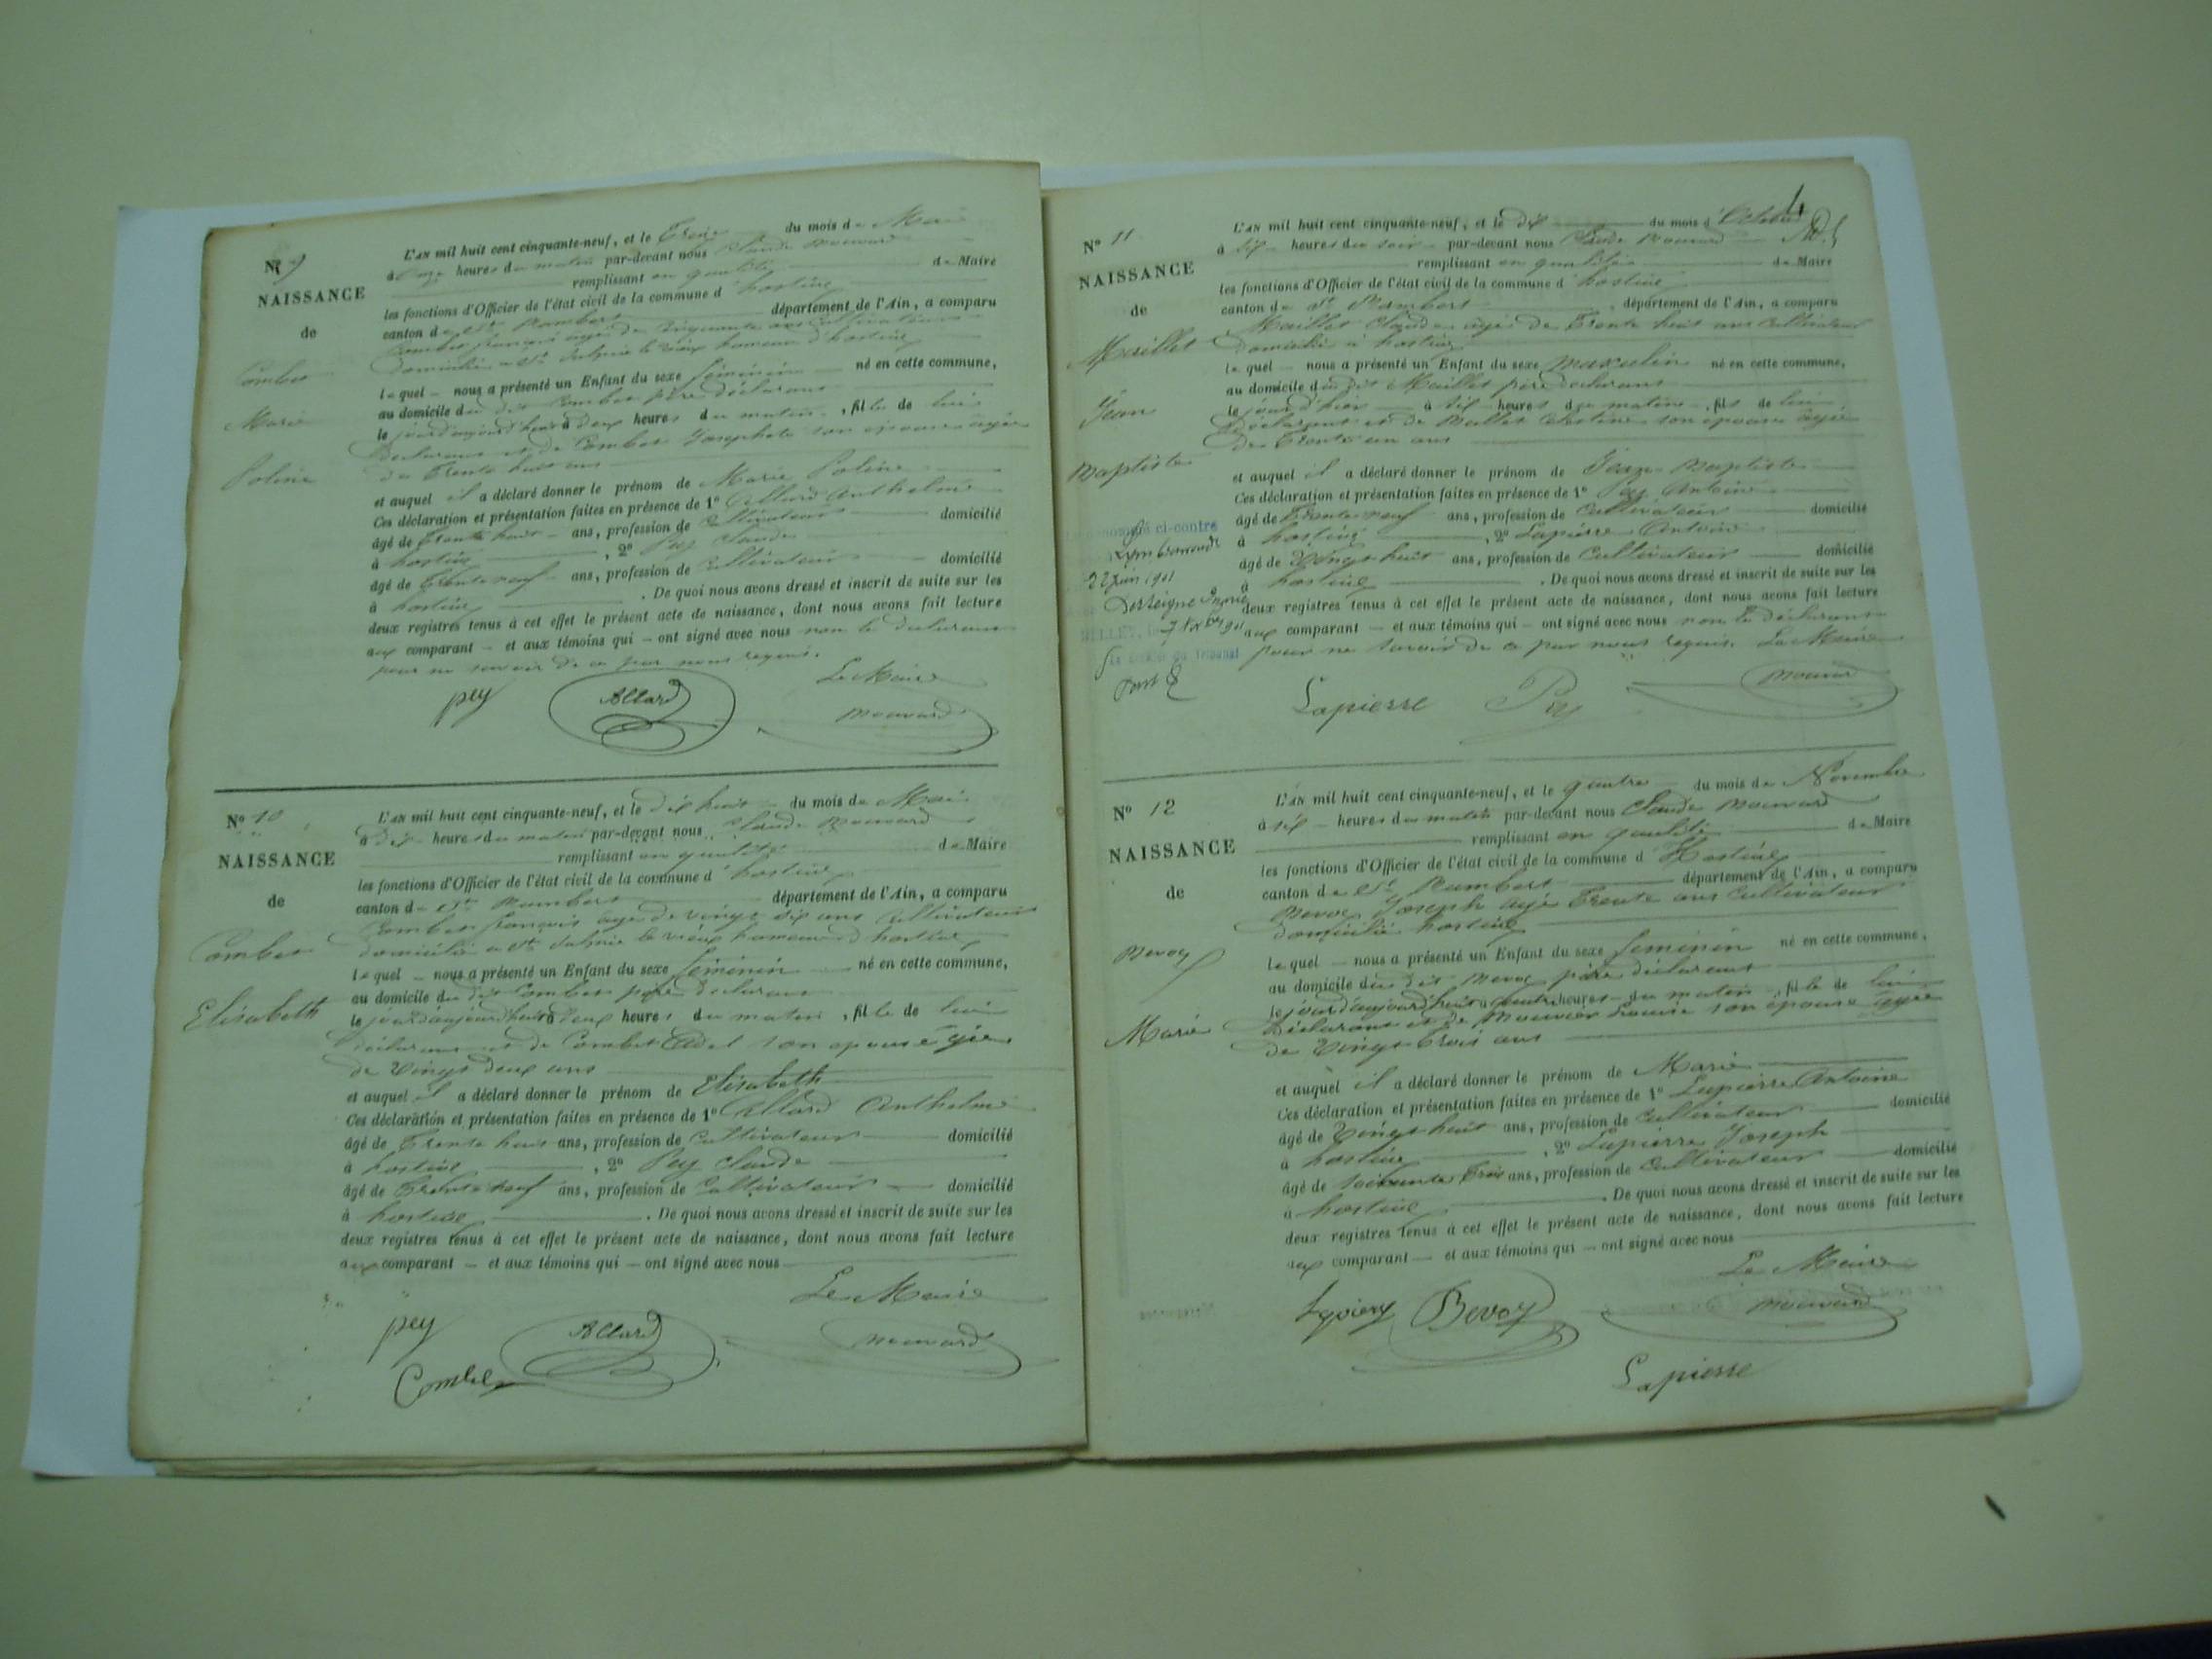 N° 9
NAISSANCE
de
Combet
Marie
Poline
L'AN mil huit cent cinquante-neuf, et le treize du mois de Mai
à onze heures du matin par-devant nous Claude Mouvard
remplissant en qualité de Maire
les fonctions d'Officier de l'état civil de la commune d'hostiaz
canton de St Rambert département de l'Ain, a comparu
Combet François agé de cinquante ans cultivateur
domicilié a St Sulpice le vieux hameau d'hostiaz
lequel nous a présenté un Enfant du sexe féminin né en cette commune,
au domicile du dit Combet père déclarant
le jourd'aujourd'hui à deux heures du matin, fille de lui
déclarant et de Combet Josephete son épouse agée
de trente huit ans
et auquel il a déclaré donner le prénom de Marie Poline
Ces déclaration et présentation faites en présence de 1° Allard Anthelme
âgé de trente huit ans, profession de cultivateur domicilié
à hostiaz, 2° Pey Claude
âgé de trente neuf ans, profession de cultivateur domicilié
à hostiaz. De quoi nous avons dressé et inscrit de suite sur les
deux registres tenus à cet effet le présent acte de naissance, dont nous avons fait lecture
aux comparant et aux témoins qui ont signé avec nous non le déclarant
pour ne savoir de ce par nous requis.
Le Maire
pey Allard Mouvard
N° 10
NAISSANCE
de
Combet
Elisabeth
L'AN mil huit cent cinquante-neuf, et le dix huit du mois de Mai
à dix heures du matin par-devant nous Claude Mouvard
remplissant en qualité de Maire
les fonctions d'Officier de l'état civil de la commune d'hostiaz
canton de St Rambert département de l'Ain, a comparu
Combet François agé de vingt six ans cultivateur
domicilié a St Sulpice le vieux hameau d'hostiaz
lequel nous a présenté un Enfant du sexe féminin né en cette commune,
au domicile du dit Combet père déclarant
le jourd'aujourd'hui à deux heures du matin, fille de lui
déclarant et de Combet Adel son epouse agée
de vingt deux ans
et auquel il a déclaré donner le prénom de Elisabeth
Ces déclaration et présentation faites en présence de 1° Allard Anthelme
âgé de trente huit ans, profession de Cultivateur domicilié
à hostiaz, 2° Pey Claude
âgé de trente neuf ans, profession de Cultivateur domicilié
à hostiaz. De quoi nous avons dressé et inscrit de suite sur les
deux registres tenus à cet effet le présent acte de naissance, dont nous avons fait lecture
aux comparant et aux témoins qui ont signé avec nous
Le Maire
pey Allard Mouvard
Combet
4
N° 11
NAISSANCE
de
Maillet
Jean
Baptiste
L'AN mil huit cent cinquante-neuf, et le dix du mois d'Octobre
à six heures du soir par-devant nous Claude Mouvard
remplissant en qualité de Maire
les fonctions d'Officier de l'état civil de la commune d'hostiaz
canton de St Rambert, département de l'Ain, a comparu
Maillet Claude agé de trente huit ans cultivateur
domicilié à hostiaz
lequel nous a présenté un Enfant du sexe masculin né en cette commune,
au domicile du dit Maillet père déclarant
le jour d'hier à six heures du matin, fils de lui
déclarant et de Mallet Celestine son épouse agée
de trente un ans
et auquel il a déclaré donner le prénom de Jean Baptiste
Ces déclaration et présentation faites en présence de 1° Pey Antoine
âgé de trente neuf ans, profession de Cultivateur domicilié
à hostiaz, 2° Lapierre Antoine
âgé de vingt huit ans, profession de Cultivateur domicilié
à hostiaz. De quoi nous avons dressé et inscrit de suite sur les
deux registres tenus à cet effet le présent acte de naissance, dont nous avons fait lecture
aux comparant et aux témoins qui ont signé avec nous non le déclarant
pour ne savoir de ce par nous requis. Le Maire
Lapierre Pey Mouvard
ci-contre
22 juin 1901
BELLEY
N° 12
NAISSANCE
de
Bevoz
Marie
L'AN mil huit cent cinquante-neuf, et le quatre du mois de Novembre
à six heures du matin par-devant nous Claude Mouvard
remplissant en qualité de Maire
les fonctions d'Officier de l'état civil de la commune d'Hostiaz
canton de St Rambert département de l'Ain, a comparu
Bevoz Joseph agé trente ans Cultivateur
domicilié hostiaz
lequel nous a présenté un Enfant du sexe feminin né en cette commune,
au domicile du dit Bevoz père déclarant
le jourd'aujourd'hui à quatre heures du matin, fille de lui
déclarant et de Mouvier son épouse agée
de vingt trois ans
et auquel il a déclaré donner le prénom de Marie
Ces déclaration et présentation faites en présence de 1° Lapierre Antoine
âgé de vingt huit ans, profession de Cultivateur domicilié
à hostiaz, 2° Lapierre Joseph
âgé de soixante trois ans, profession de Cultivateur domicilié
à hostiaz. De quoi nous avons dressé et inscrit de suite sur les
deux registres tenus à cet effet le présent acte de naissance, dont nous avons fait lecture
aux comparant et aux témoins qui ont signé avec nous
Le Maire
Bevoz Mouvard
Lapierre